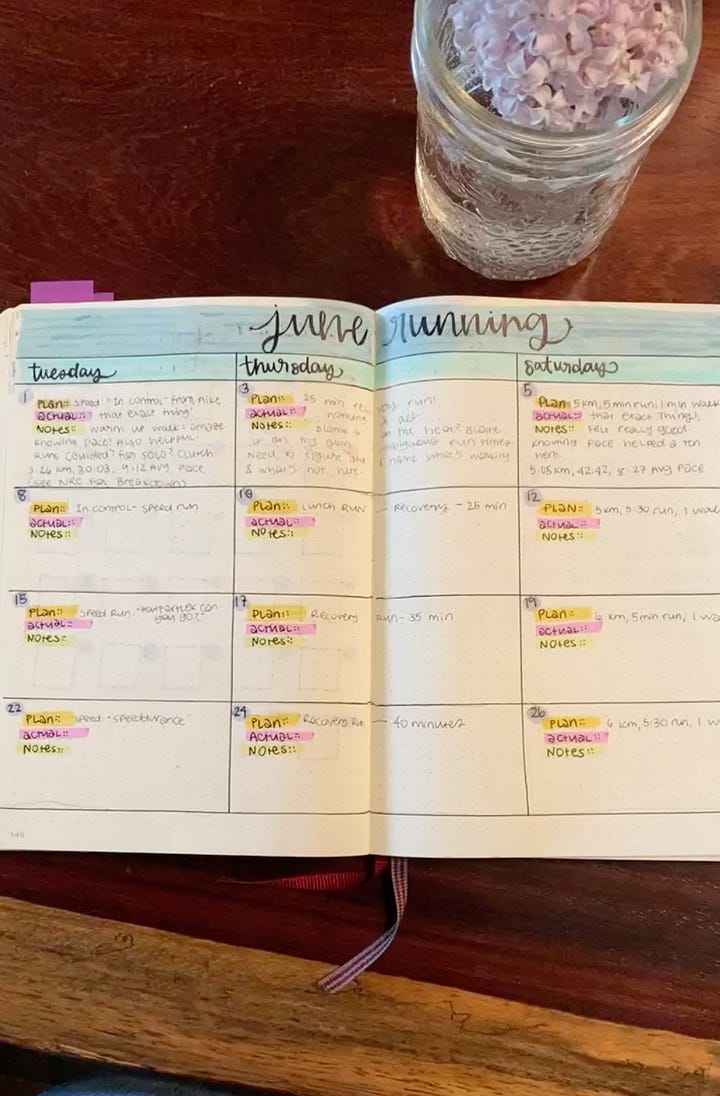 june running
tuesday
thursday
saturday
1
Plan:: speed: "In control" from nike
actual:: that exact thing!
Notes:: warm up walk:
knowing pace! Also helpful-
Runs
3.26 km, 30:03, 9:12 Avg. Pace
(see NRC for Breakdown)
3
Plan:: 25 min recovery run!
actual:: nothing at all
Notes:: Blame it on the heat? Blame
it on my
Need to figure out & name what's working
& what's not here.
5
Plan: 5km, 5 min run, 1 min walk
actual:: that exact Thing!
Notes:: Felt really good
knowing pace helped a ton
here.
5.05 km, 42:42, 8:27 Avg Pace
8
Plan: In control- speed run
actual::
Notes::
10
Plan:: Lunch Run - Recovery - 25 min
actual::
Notes::
12
PLAN:: 5km, 5:30 run, 1 wal
actual::
Notes::
15
Plan:: Speed Run - "
can
you go?"
actual::
Notes::
17
Plan:: Recovery Run- 35 min
actual::
Notes::
19
Plan:: 6 km, 5min run, 1 wa
actual::
Notes::
22
Plan:: speed: "speedurance"
actual::
Notes::
24
Plan:: Recovery Run - 40 minutes
Actual::
Notes::
26
Plan:: 6 km, 5:30 run, 1 w
actual::
Notes::
146